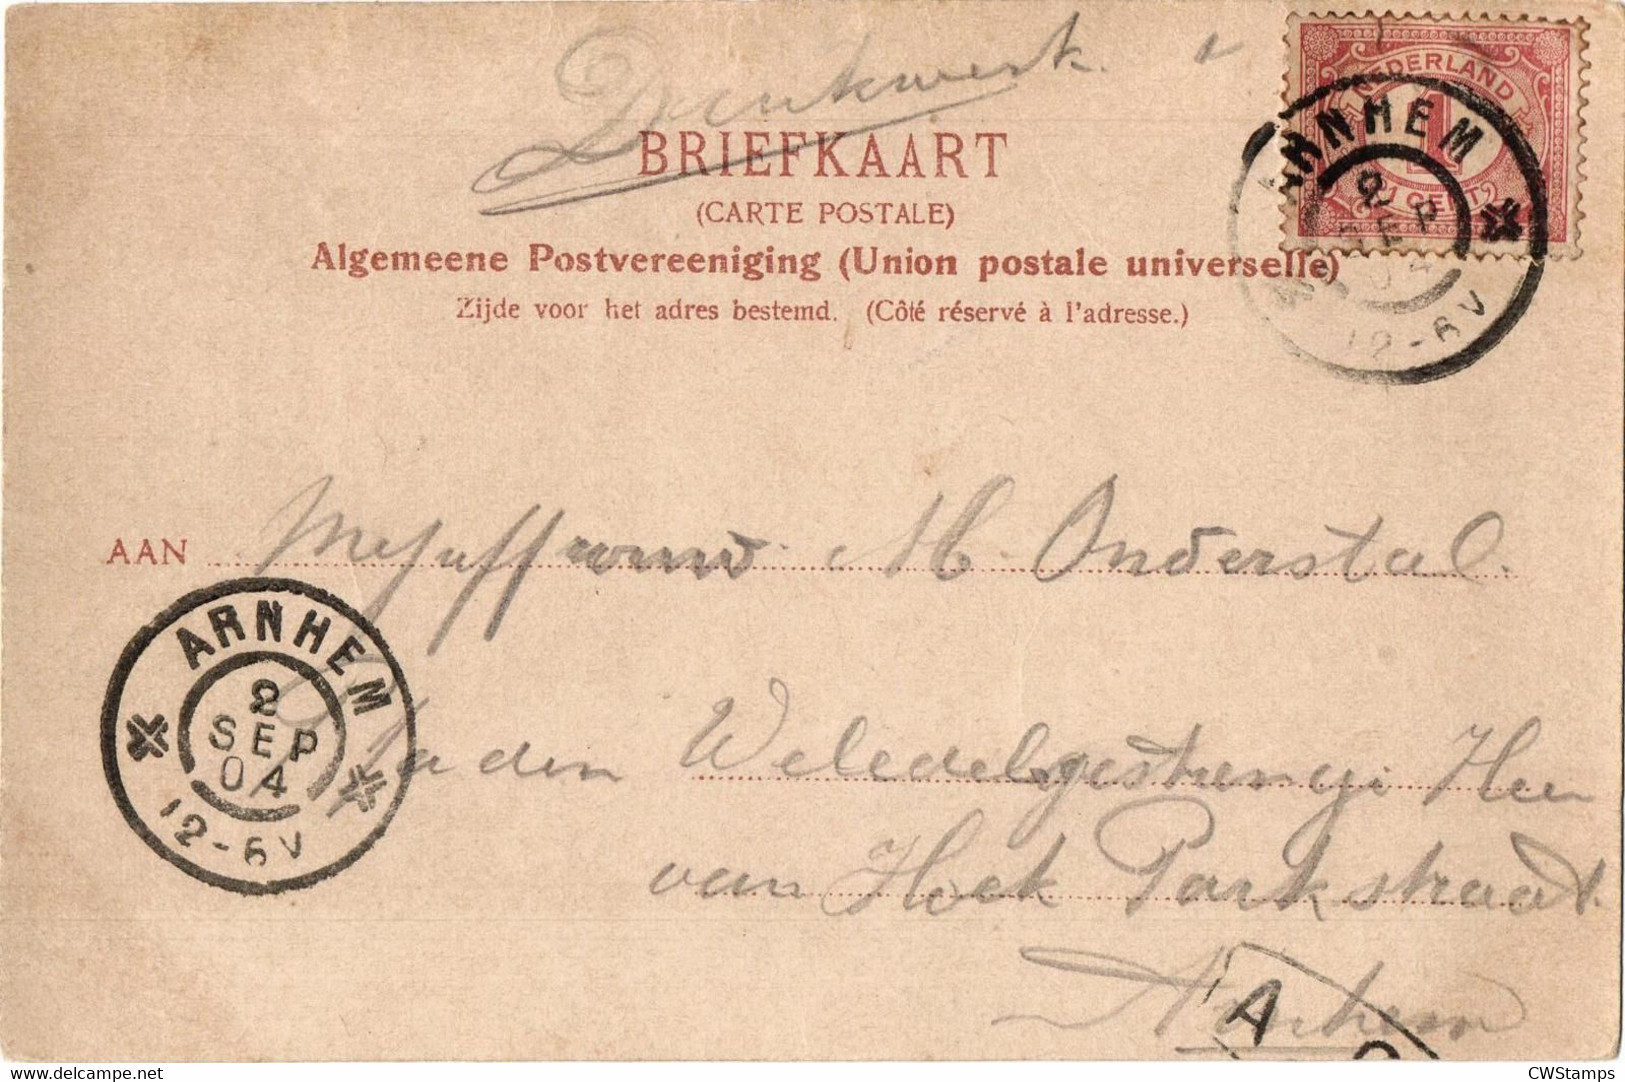 Drukwerk.
NEDERLAND
1
1 CENT
ARNHEM
SEP
04
12-6V
BRIEFKAART
(CARTE POSTALE)
Algemeene Postvereeniging (Union postale universelle)
Zijde voor het adres bestemd. (Côté réservé à l'adresse.)
AAN Mejuffrouw M. Onderstal.
ARNHEM
SEP
04
12-6V
Ja den Weledelgestrenge Heer
van Hoek Parkstraat.
Arnhem
A
CWStamps
CWStamps